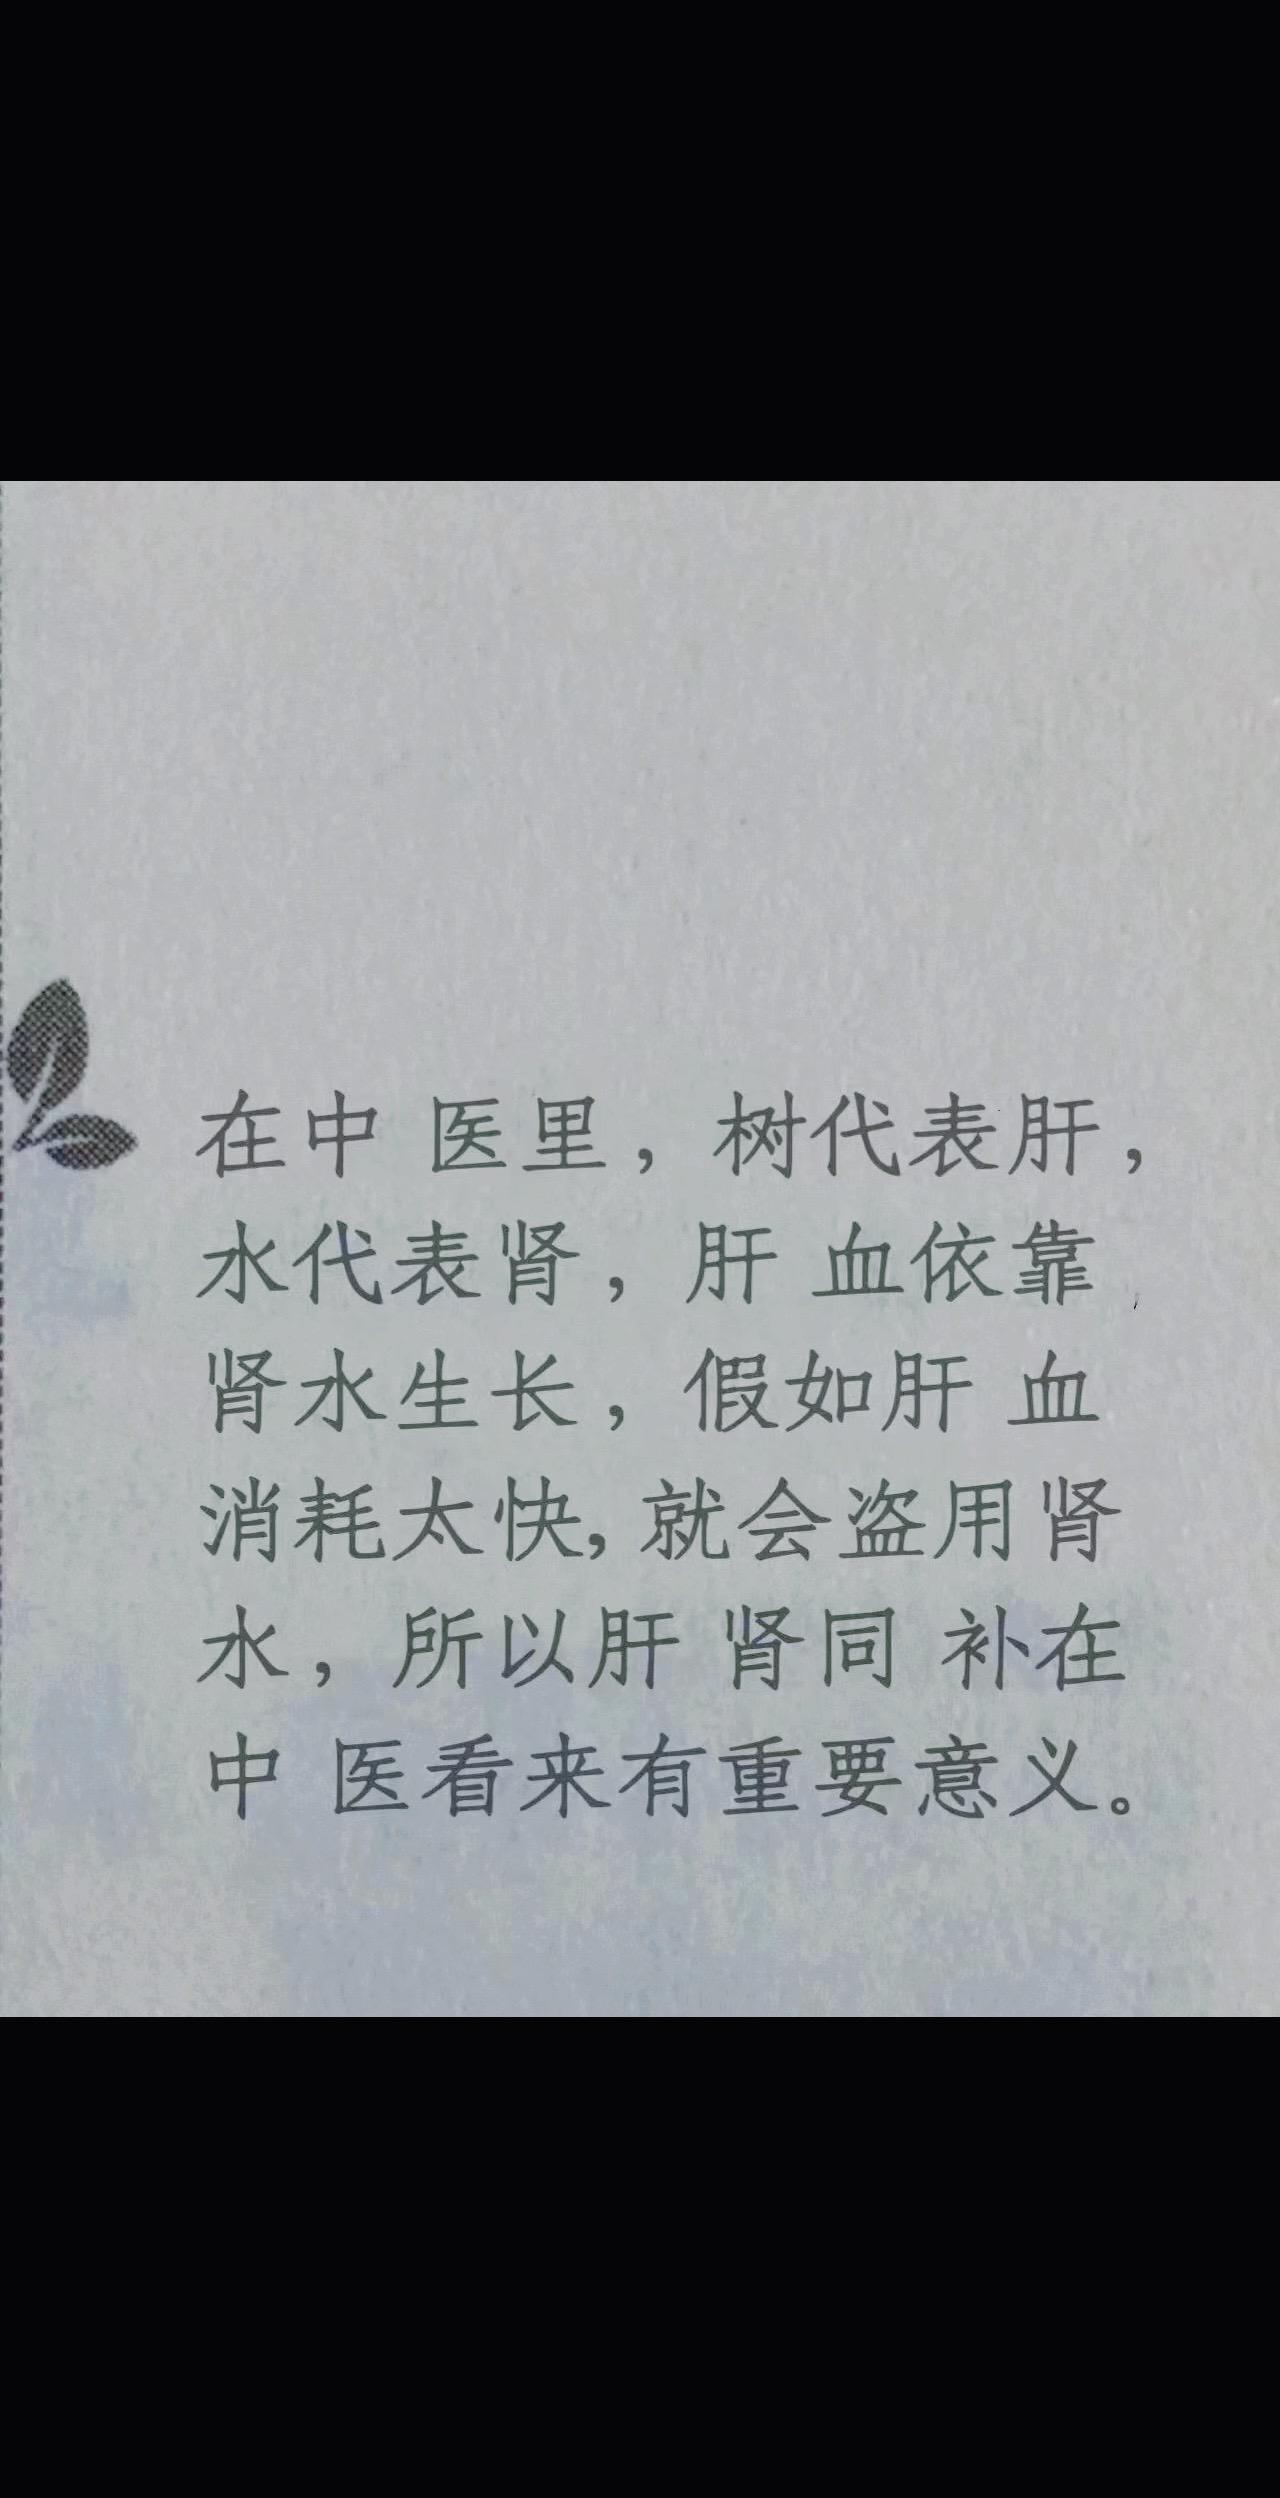 在中 医里，树代表肝，
水代表肾，肝 血依靠
肾水生长，假如肝 血
消耗太快，就会盗用肾
水，所以肝 肾同 补在
中 医看来有重要意义。